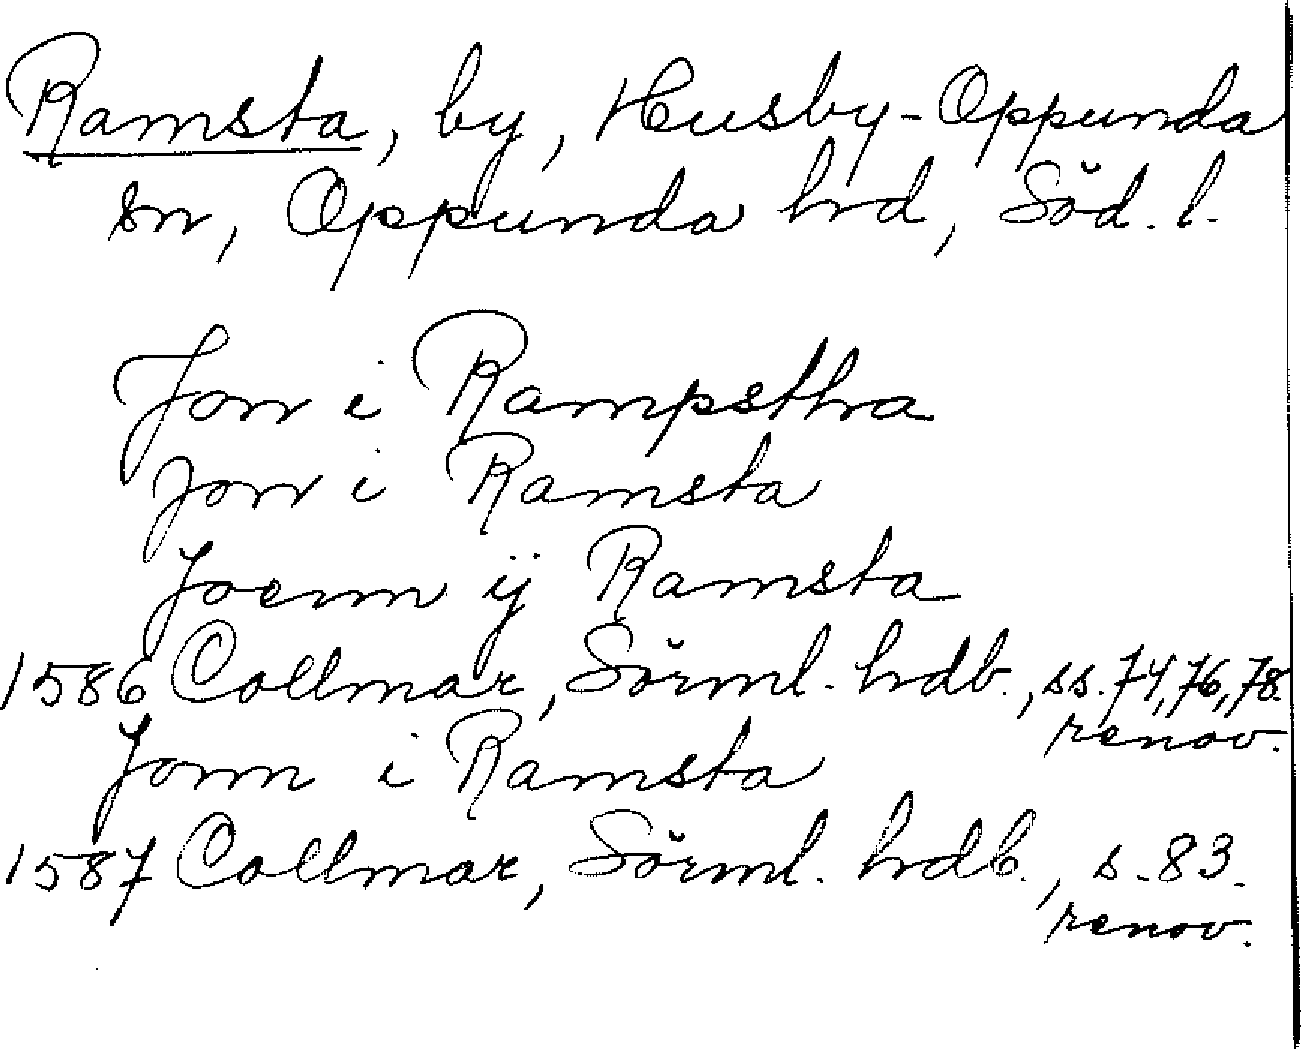 Ramsta, by, Husby-Oppunda
sn, Oppunda hrd, Söd. l.
Jon i Rampstha
Jon i Ramsta
Joenn ÿ Ramsta
1586 Collmar, Sörml. hdb., ss. 74, 76, 78.
renov.
Jonn i Ramsta
1587 Collmar, Sörml. hdb., s. 83.
renov.